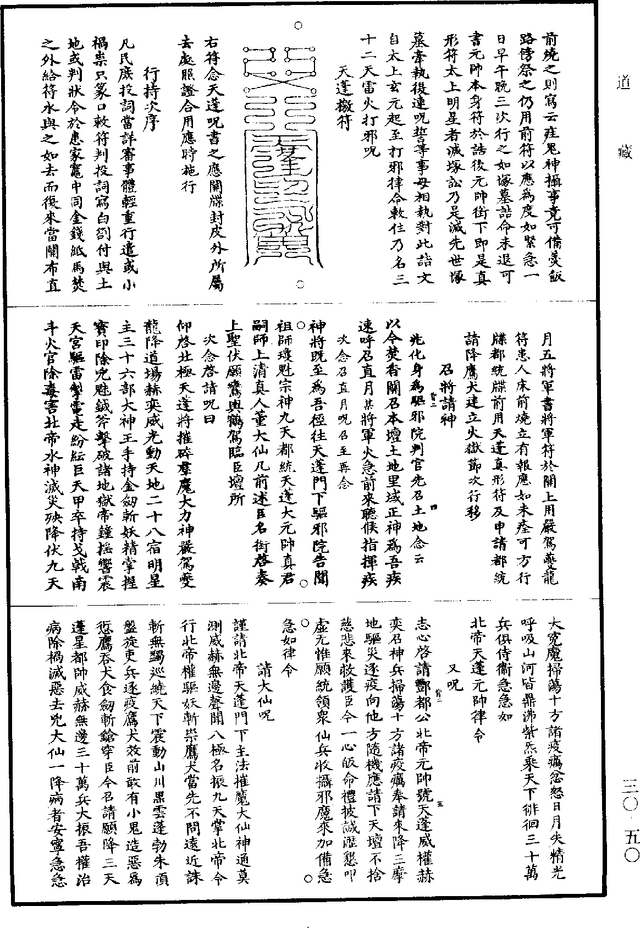 道藏
前燒之則寫云莊鬼神攝事竟可備羹飯
路傍祭之仍用前符以應為度如緊急一
日早午晚三次行之如塚墓誥命未退可
書元帥本身符於誥後元帥銜下即是真
形符太上明星者滅塚訟乃是滅先世塚
墓牽執役連呪誓等事毋相執對此誥文
自太上玄元起至打邪律令敕住乃名三
十二天雷火打邪呪
天蓬檄符
右符念天蓬呪書之應關牒封皮外所屬
去處照證合用應時施行
行持次序
凡民庶投詞當詳審事體輕重行遣或小
禍祟只篆口敕符判投詞寫白劄付與土
地或判狀令於患家竈中同金錢紙馬焚
之外給符水與之如去而復來當關布直
月五將軍書將軍符於關上用嚴駕夔龍
符患人床前燒立有報應如未痊可方行
牒都統牒前用天蓬真形符及申請都統
請降鷹犬建立火獄節次行移
召將請神
先化身為驅邪院判官先召土地念云
以今焚香關召本壇土地里域正神為吾疾
速呼召直月某將軍火急前來聽候指揮疾
次念召直月呪召至再念
神將既至為吾極往天蓬門下驅邪院告聞
祖師璞魁宗神九天都統天蓬大元帥真君
嗣師上清真人董大仙几前述臣名銜啓奏
上聖伏願鸞輿鶴駕臨臣壇所
次念啓請呪曰
仰啓北極天蓬將摧碎羣魔大力神嚴駕夔
龍降道場赫奕威光動天地二十八宿明星
主三十六部大神王手持金劒斬妖精掌握
寶印除兇魁鉞斧擊破諸地獄帝鐘搖響震
天宮驅雷掣電走紛紜巨天甲卒持戈戟南
斗火官除毒害北帝水神滅災殃降伏九天
大寃魔掃蕩十方諸疫癘忿怒日月失精光
呼吸山河皆鼎沸紫炁乘天下徘徊三十萬
兵俱侍衞急急如
北帝天蓬元帥律令
又呪
志心啓請酆都公北帝元帥號天蓬威權赫
奕召神兵掃蕩十方諸疫癘奉請來降三摩
地驅災逐疫向他方隨機應請下天壇不捨
慈悲來救護臣今一心皈命禮披誠瀝懇叩
虛无惟願統領衆仙兵收攝邪魔來加備急
急如律令
請大仙呪
謹請北帝天蓬門下主法摧魔大仙神通莫
測威赫無邊聲聞八極名振九天掌北帝令
行北帝權驅妖斬祟鷹犬當先不問遠近誅
斬無蠲巡繞天下震動山川黑雲蓬勃朱頂
盤旋吏兵逐疫鷹犬效前敢有小鬼造惡為
愆鷹吞犬食劒斬鎗穿臣今召請願降三天
蓬星都帥威赫無邊三十萬兵大振吾權治
病除禍滅惡去兇大仙一降病者安寧急急
三〇·五〇